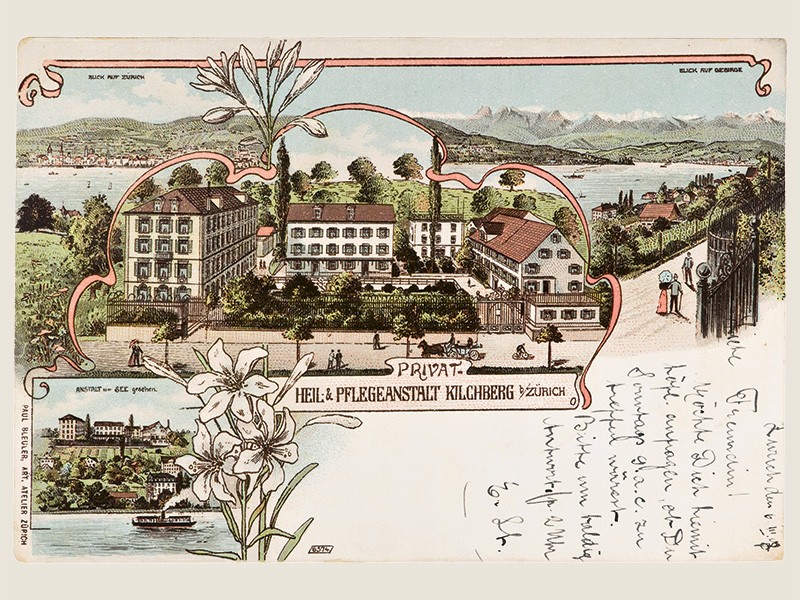 BLICK AUF ZÜRICH
BLICK AUF GEBIRGE
PRIVAT-
HEIL- & PFLEGEANSTALT KILCHBERG b/ZÜRICH
ANSTALT vom SEE gesehen.
PAUL BLEULER, ART. ATELIER ZÜRICH
6574
Zürich den
Liebe Freundin!
Möchte Dich hiermit
höfl. anfragen, ob Du
Sonntag zu
treffen wärest.
Bitte um baldig
Antwort
E. St.